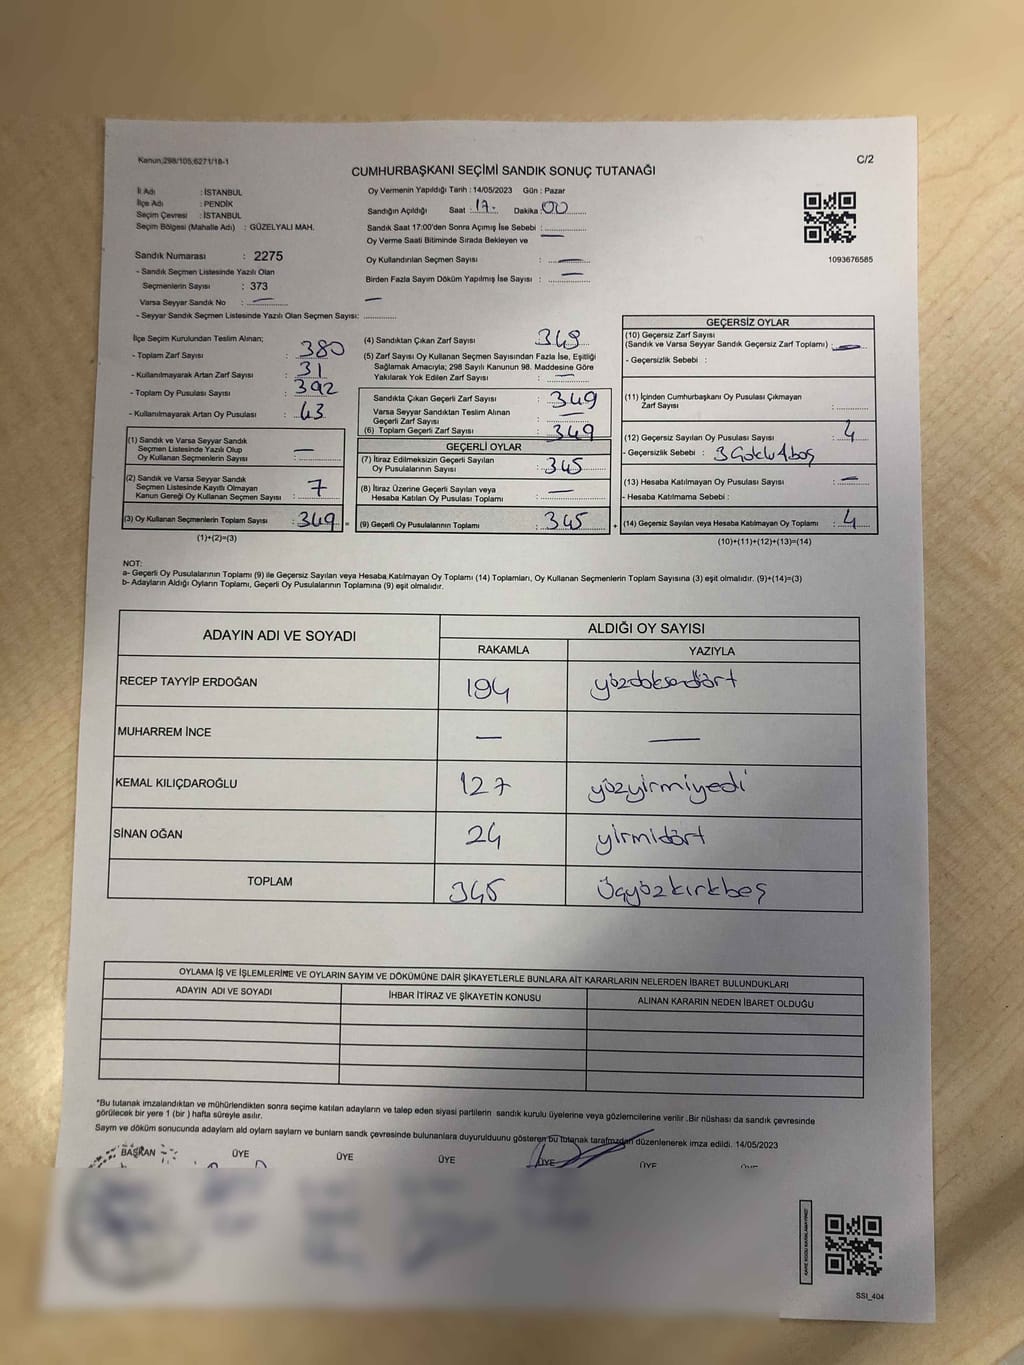 Kanun;298/105;6271/18-1
C/2
CUMHURBAŞKANI SEÇİMİ SANDIK SONUÇ TUTANAĞI
İl Adı : İSTANBUL
İlçe Adı : PENDİK
Seçim Çevresi : İSTANBUL
Seçim Bölgesi (Mahalle Adı) : GÜZELYALI MAH.
Oy Vermenin Yapıldığı Tarih : 14/05/2023 Gün : Pazar
Sandığın Açıldığı Saat : 17- Dakika : 00
Sandık Saat 17:00'den Sonra Açımış İse Sebebi :
Oy Verme Saati Bitiminde Sırada Bekleyen ve
Oy Kullandırılan Seçmen Sayısı : —
Birden Fazla Sayım Döküm Yapılmış İse Sayısı : —
1093676585
Sandık Numarası : 2275
- Sandık Seçmen Listesinde Yazılı Olan
Seçmenlerin Sayısı : 373
Varsa Seyyar Sandık No : —
- Seyyar Sandık Seçmen Listesinde Yazılı Olan Seçmen Sayısı: —
İlçe Seçim Kurulundan Teslim Alınan;
- Toplam Zarf Sayısı : 380
- Kullanılmayarak Artan Zarf Sayısı : 31
- Toplam Oy Pusulası Sayısı : 392
- Kullanılmayarak Artan Oy Pusulası : 43
(1) Sandık ve Varsa Seyyar Sandık
Seçmen Listesinde Yazılı Olup
Oy Kullanan Seçmenlerin Sayısı : —
(2) Sandık ve Varsa Seyyar Sandık
Seçmen Listesinde Kayıtlı Olmayan
Kanun Gereği Oy Kullanan Seçmen Sayısı : 7
(3) Oy Kullanan Seçmenlerin Toplam Sayısı : 349 =
(1)+(2)=(3)
(4) Sandıktan Çıkan Zarf Sayısı : 349
(5) Zarf Sayısı Oy Kullanan Seçmen Sayısından Fazla İse, Eşitliği
Sağlamak Amacıyla; 298 Sayılı Kanunun 98. Maddesine Göre
Yakılarak Yok Edilen Zarf Sayısı : —
Sandıkta Çıkan Geçerli Zarf Sayısı : 349
Varsa Seyyar Sandıktan Teslim Alınan
Geçerli Zarf Sayısı : —
(6) Toplam Geçerli Zarf Sayısı : 349
GEÇERLİ OYLAR
(7) İtiraz Edilmeksizin Geçerli Sayılan
Oy Pusulalarının Sayısı : 345
(8) İtiraz Üzerine Geçerli Sayılan veya
Hesaba Katılan Oy Pusulası Toplamı : —
(9) Geçerli Oy Pusulalarının Toplamı : 345 +
GEÇERSİZ OYLAR
(10) Geçersiz Zarf Sayısı
(Sandık ve Varsa Seyyar Sandık Geçersiz Zarf Toplamı) : —
- Geçersizlik Sebebi :
(11) İçinden Cumhurbaşkanı Oy Pusulası Çıkmayan
Zarf Sayısı :
(12) Geçersiz Sayılan Oy Pusulası Sayısı : 4
- Geçersizlik Sebebi : 3 Çoklu 1 boş
(13) Hesaba Katılmayan Oy Pusulası Sayısı : —
- Hesaba Katılmama Sebebi :
(14) Geçersiz Sayılan veya Hesaba Katılmayan Oy Toplamı : 4
(10)+(11)+(12)+(13)=(14)
NOT:
a- Geçerli Oy Pusulalarının Toplamı (9) ile Geçersiz Sayılan veya Hesaba Katılmayan Oy Toplamı (14) Toplamları, Oy Kullanan Seçmenlerin Toplam Sayısına (3) eşit olmalıdır. (9)+(14)=(3)
b- Adayların Aldığı Oyların Toplamı, Geçerli Oy Pusulalarının Toplamına (9) eşit olmalıdır.
ADAYIN ADI VE SOYADI
ALDIĞI OY SAYISI
RAKAMLA YAZIYLA
RECEP TAYYİP ERDOĞAN 194 yüzdoksandört
MUHARREM İNCE — —
KEMAL KILIÇDAROĞLU 127 yüzyirmiyedi
SİNAN OĞAN 24 yirmidört
TOPLAM 345 Üçyüzkırkbeş
OYLAMA İŞ VE İŞLEMLERİNE VE OYLARIN SAYIM VE DÖKÜMÜNE DAİR ŞİKAYETLERLE BUNLARA AİT KARARLARIN NELERDEN İBARET BULUNDUKLARI
ADAYIN ADI VE SOYADI İHBAR İTİRAZ VE ŞİKAYETİN KONUSU ALINAN KARARIN NEDEN İBARET OLDUĞU
*Bu tutanak imzalandıktan ve mühürlendikten sonra seçime katılan adayların ve talep eden siyasi partilerin sandık kurulu üyelerine veya gözlemcilerine verilir .Bir nüshası da sandık çevresinde
görülecek bir yere 1 (bir ) hafta süreyle asılır.
Sayım ve döküm sonucunda adayların aldı oyların sayıları ve bunların sandık çevresinde bulunanlara duyurulduunu gösteren bu tutanak tarafımızdan düzenlenerek imza edildi. 14/05/2023
BAŞKAN ÜYE ÜYE ÜYE ÜYE ÜYE
SSI_404